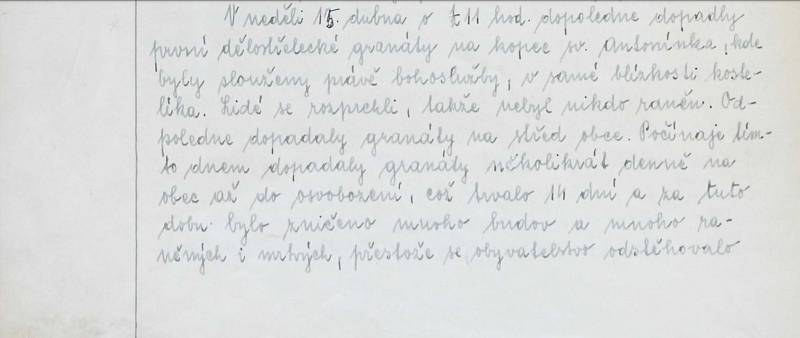 V neděli 15. dubna o ½ 11 hod. dopoledne dopadly
první dělostřelecké granáty na kopec sv. Antonínka, kde
byly slouženy právě bohoslužby, v samé blízkosti koste-
líka. Lidé se rozprchli, takže nebyl nikdo raněn. Od-
poledne dopadaly granáty na střed obce. Počínaje tím-
to dnem dopadaly granáty několikrát denně na
obec až do osvobození, což trvalo 14 dní a za tuto
dobu bylo zničeno mnoho budov a mnoho ra-
něných i mrtvých, přestože se obyvatelstvo odstěhovalo